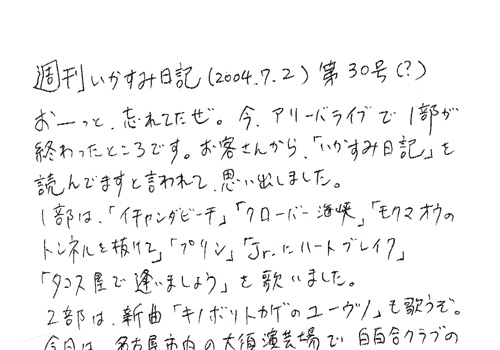 週刊いかすみ日記(2004.7.2)第30号(?)
おーっと、忘れてたぜ。今、アリーバライブで1部が
終わったところです。お客さんから、「いかすみ日記」を
読んでますと言われて、思い出しました。
1部は、「イチャンダビーチ」「クローバー海峡」「モクマオウの
トンネルを抜けて」「プリン」「Jr.にハートブレイク」
「タコス屋で逢いましょう」を歌いました。
2部は、新曲「キノボリトカゲのユーウツ」も歌うぞ。
今日は、名古屋市内の大須演芸場で白百合クラブの